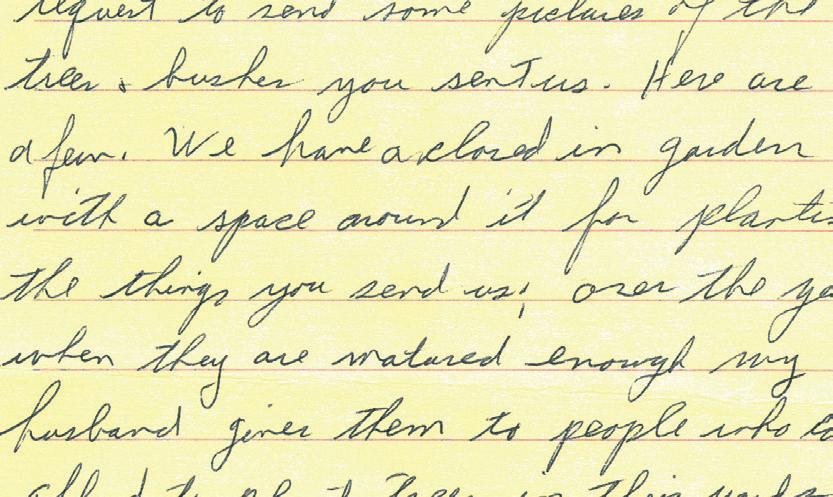 request to send some pictures of the
trees & bushes you sent us. Here are
a few. We have a closed in garden
with a space around it for
the things you send us; over the
when they are matured enough my
husband gives them to people who